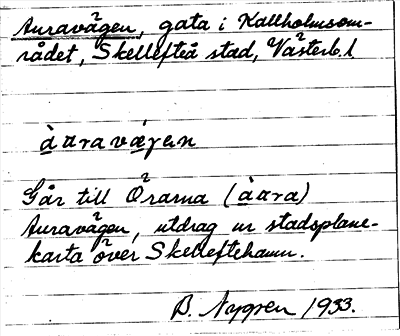 Auravägen, gata i Kallholmsom-
rådet, Skellefteå stad, Västerb. l.
àuravä́gen
Går till Örarna (àara)
Auravägen, utdrag ur stadsplane-
karta över Skelleftehamn.
B. Nygren 1933.